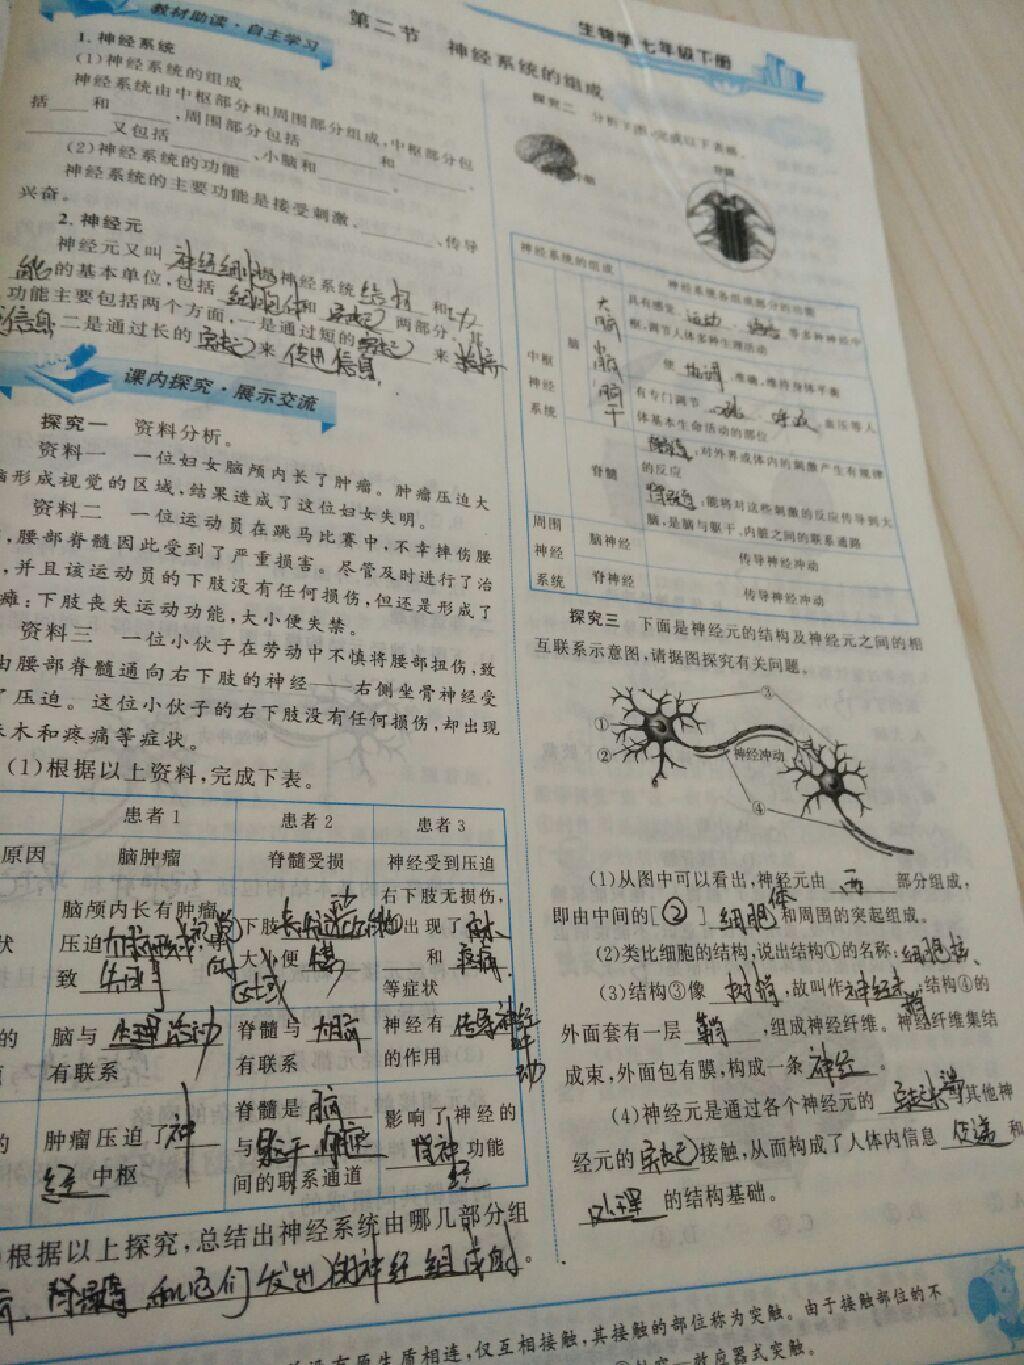 生物学 七年级下册
第二节 神经系统的组成
教材助读·自主学习
1. 神经系统
(1)神经系统的组成
神经系统由中枢部分和周围部分组成,中枢部分包
括____和______,周围部分包括________和________。
________又包括________、小脑和________。
(2)神经系统的功能
神经系统的主要功能是接受刺激、________、传导
兴奋。
2. 神经元
神经元又叫 神经细胞 是神经系统 结构 和 功
能 的基本单位,包括 细胞体 和 突起 两部分,
功能主要包括两个方面,一是通过短的 突起 来
信息 二是通过长的 突起 来 传出信息
课内探究·展示交流
探究一 资料分析。
资料一 一位妇女脑颅内长了肿瘤。肿瘤压迫大
脑形成视觉的区域,结果造成了这位妇女失明。
资料二 一位运动员在跳马比赛中,不幸摔伤腰
,腰部脊髓因此受到了严重损害。尽管及时进行了治
,并且该运动员的下肢没有任何损伤,但还是形成了
瘫:下肢丧失运动功能,大小便失禁。
资料三 一位小伙子在劳动中不慎将腰部扭伤,致
由腰部脊髓通向右下肢的神经——右侧坐骨神经受
了压迫。这位小伙子的右下肢没有任何损伤,却出现
麻木和疼痛等症状。
(1)根据以上资料,完成下表。
患者1 患者2 患者3
原因 脑肿瘤 脊髓受损 神经受到压迫
状 脑颅内长有肿瘤, 压迫 大脑形成视觉的区域 致 失明
下肢 丧失运动功能 大小便
右下肢无损伤, 出现了 麻木 和 疼痛 等症状
的 脑与 生理活动 有联系
脊髓与 大脑 有联系
神经有 传导神经冲动 的作用
的 肿瘤压迫了 神经 中枢
脊髓是 脑 与 躯干、内脏 间的联系通道
影响了神经的 功能
根据以上探究,总结出神经系统由哪几部分组
、脊髓 和它们发出的神经组成的。
探究二 分析下图,完成以下表格。
小脑
脊髓
神经系统的组成 神经系统各组成部分的功能
中枢神经系统 脑
大脑 具有感觉、运动、语言 等多种神经中
枢,调节人体多种生理活动
小脑 使 协调 、准确,维持身体平衡
脑干 有专门调节 心跳、呼吸、血压等人
体基本生命活动的部位
脊髓 :对外界或体内的刺激产生有规律
的反应
:能将对这些刺激的反应传导到大
脑,是脑与躯干、内脏之间的联系通路
周围神经系统 脑神经 传导神经冲动
脊神经 传导神经冲动
探究三 下面是神经元的结构及神经元之间的相
互联系示意图,请据图探究有关问题。
③
①
② 神经冲动
④
(1)从图中可以看出,神经元由 两 部分组成,
即由中间的[ ② ] 细胞体 和周围的突起组成。
(2)类比细胞的结构,说出结构①的名称: 细胞核 。
(3)结构③像 树梢 ,故叫作 神经末梢 ;结构④的
外面套有一层 鞘 ,组成神经纤维。神经纤维集结
成束,外面包有膜,构成一条 神经 。
(4)神经元是通过各个神经元的 突起末端 与其他神
经元的 突起 接触,从而构成了人体内信息 传递 和
处理 的结构基础。
没有原生质相连,仅互相接触,其接触的部位称为突触。由于接触部位的不
效应器式突触。